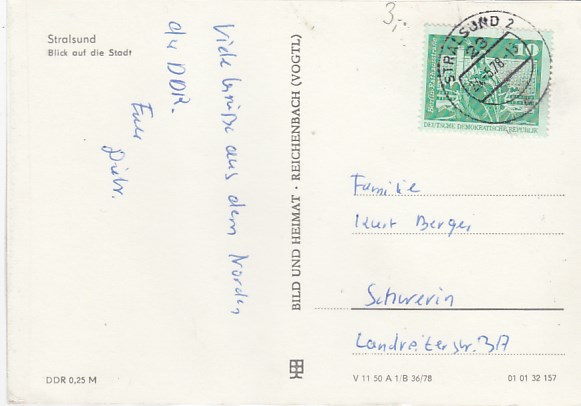 Stralsund
Blick auf die Stadt
Viele Grüße aus dem Norden
der DDR.
Euer
BILD UND HEIMAT · REICHENBACH (VOGTL)
3,-
STRALSUND 2
23
78
10
Berlin, Rathausstraße
DEUTSCHE DEMOKRATISCHE REPUBLIK
Familie
Kurt Berger
Schwerin
Landreiterstr. 3A
DDR 0,25 M
V 11 50 A 1/B 36/78
01 01 32 157